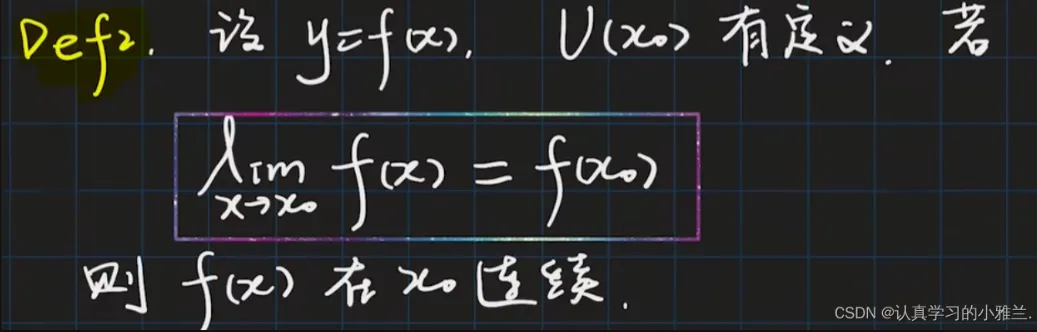 Def2. 设 y=f(x), U(x₀) 有定义. 若
lim f(x) = f(x₀)
x→x₀
则 f(x) 在 x₀ 连续.
CSDN @认真学习的小雅兰.